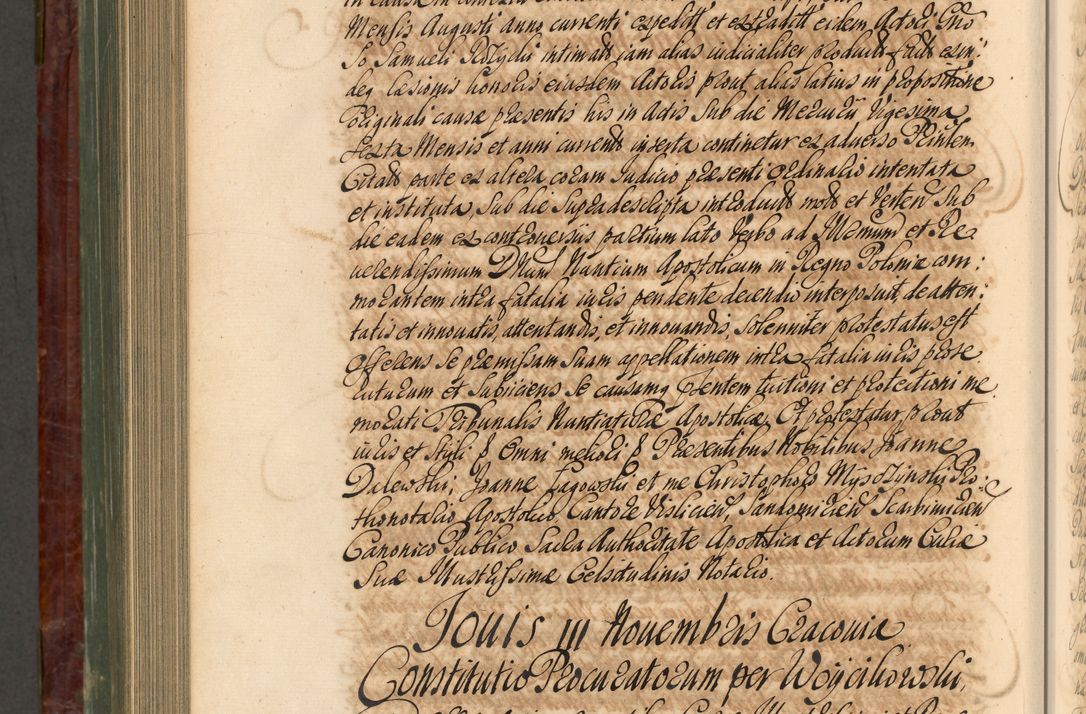 Mensis Augusti anno currenti expediti et extraditi eidem Actori Gno
So Samueli intimati jam alias judicialiter producti
deq laesionis honoris eiusdem Actoris prout alias latius in propositione
originali causae praesentis his in Actis sub die Mercurii Vigesima
sexta Mensis et anni currentis inserta continetur ex adverso Principem
Citati parte ex altera coram Judicio praesenti ordinario intentata
et instituta, sub die supradescripta introducti moti et Verten sub
die eadem ex controversiis partium lato Verbo ad Illmum et Re
verendissimum Dnum Nuntium Apostolicum in Regno Poloniae com:
morantem intra fatalia iuris pendente decendio interposuit, de atten:
tatis et innovatis, attentandis, et innovandis, solenniter protestatus est
Offerens se praemissam suam appellationem intra fatalia iuris prose
cuturum et subiiciens se causamq tuitioni et protectioni me
morati Tribunalis Nuntiaturae Apostolicae Et protestatur prout
iuris et styli P omni meliori P Praesentibus Nobilibus Joanne
Dulewski; Joanne Jagowski et me Christophoro Myszynski Pro:
thonotario Apostolico, Cantore Visliciên, Sandomiriên Scarbimiriên
Canonico Publico Sacra Authoritate Apostolica et Actorum Curiae
Suae Illustrissimae Celsitudinis Notario.
Jouis III Nouembris Cracouiae
Constitutio Procuratorum per Woycikowski,